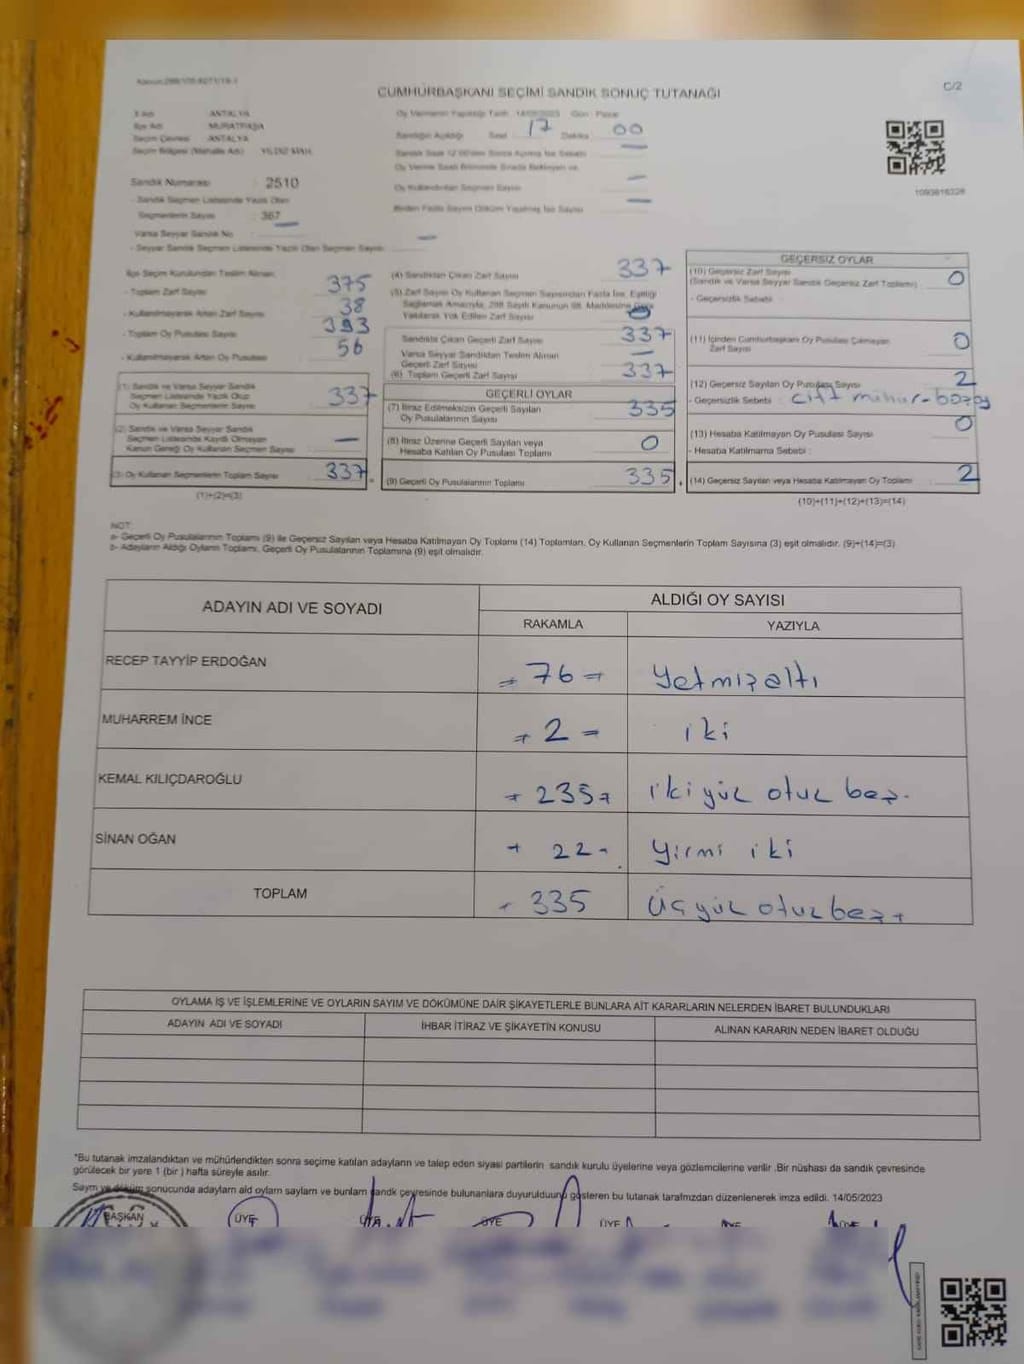 C/2
CUMHURBAŞKANI SEÇİMİ SANDIK SONUÇ TUTANAĞI
İl Adı ANTALYA
İlçe Adı MURATPAŞA
Seçim Çevresi ANTALYA
Seçim Bölgesi (Mahalle Adı) YILDIZ MAH.
Sandık Numarası 2510
- Sandık Seçmen Listesinde Yazılı Olan
Seçmenlerin Sayısı : 367
Varsa Seyyar Sandık No —
- Seyyar Sandık Seçmen Listesinde Yazılı Olan Seçmen Sayısı —
Oy Vermenin Yapıldığı Tarih 14/05/2023 Gün : Pazar
Sandığın Açıldığı Saat 17 Dakika 00
Oy Kullandırılan Seçmen Sayısı —
Birden Fazla Sayım Döküm Yapılmış İse Sayısı —
1093616328
İlçe Seçim Kurulundan Teslim Alınan
- Toplam Zarf Sayısı 375
- Kullanılmayarak Artan Zarf Sayısı 38
- Toplam Oy Pusulası Sayısı 393
- Kullanılmayarak Artan Oy Pusulası 56
(1) Sandık ve Varsa Seyyar Sandık
Seçmen Listesinde Yazılı Olup
Oy Kullanan Seçmenlerin Sayısı 337
(2) Sandık ve Varsa Seyyar Sandık
Seçmen Listesinde Kayıtlı Olmayan
Kanun Gereği Oy Kullanan Seçmen Sayısı —
(3) Oy Kullanan Seçmenlerin Toplam Sayısı 337
(1)+(2)=(3)
(4) Sandıktan Çıkan Zarf Sayısı 337
(5) Zarf Sayısı Oy Kullanan Seçmen Sayısından Fazla İse, Eşitliği
Sağlamak Amacıyla, 298 Sayılı Kanunun 98. Maddesine Göre
Yakılarak Yok Edilen Zarf Sayısı
Sandıkta Çıkan Geçerli Zarf Sayısı 337
Varsa Seyyar Sandıktan Teslim Alınan
Geçerli Zarf Sayısı —
(6) Toplam Geçerli Zarf Sayısı 337
GEÇERLİ OYLAR
(7) İtiraz Edilmeksizin Geçerli Sayılan
Oy Pusulalarının Sayısı 335
(8) İtiraz Üzerine Geçerli Sayılan veya
Hesaba Katılan Oy Pusulası Toplamı 0
(9) Geçerli Oy Pusulalarının Toplamı 335
GEÇERSİZ OYLAR
(10) Geçersiz Zarf Sayısı 0
(Sandık ve Varsa Seyyar Sandık Geçersiz Zarf Toplamı)
- Geçersizlik Sebebi :
(11) İçinden Cumhurbaşkanı Oy Pusulası Çıkmayan 0
Zarf Sayısı
(12) Geçersiz Sayılan Oy Pusulası Sayısı 2
- Geçersizlik Sebebi : Çift mühür-bozoy
(13) Hesaba Katılmayan Oy Pusulası Sayısı 0
- Hesaba Katılmama Sebebi :
(14) Geçersiz Sayılan veya Hesaba Katılmayan Oy Toplamı 2
(10)+(11)+(12)+(13)=(14)
NOT:
a- Geçerli Oy Pusulalarının Toplamı (9) ile Geçersiz Sayılan veya Hesaba Katılmayan Oy Toplamı (14) Toplamları, Oy Kullanan Seçmenlerin Toplam Sayısına (3) eşit olmalıdır. (9)+(14)=(3)
b- Adayların Aldığı Oyların Toplamı, Geçerli Oy Pusulalarının Toplamına (9) eşit olmalıdır.
ADAYIN ADI VE SOYADI
ALDIĞI OY SAYISI
RAKAMLA YAZIYLA
RECEP TAYYİP ERDOĞAN = 76 = Yetmişaltı
MUHARREM İNCE = 2 = iki
KEMAL KILIÇDAROĞLU = 235 = ikiyüz otuz beş.
SİNAN OĞAN = 22 - Yirmi iki
TOPLAM - 335 Üçyüz otuzbeş
OYLAMA İŞ VE İŞLEMLERİNE VE OYLARIN SAYIM VE DÖKÜMÜNE DAİR ŞİKAYETLERLE BUNLARA AİT KARARLARIN NELERDEN İBARET BULUNDUKLARI
ADAYIN ADI VE SOYADI İHBAR İTİRAZ VE ŞİKAYETİN KONUSU ALINAN KARARIN NEDEN İBARET OLDUĞU
*Bu tutanak imzalandıktan ve mühürlendikten sonra seçime katılan adayların ve talep eden siyasi partilerin sandık kurulu üyelerine veya gözlemcilerine verilir .Bir nüshası da sandık çevresinde
görülecek bir yere 1 (bir ) hafta süreyle asılır.
Sayım ve döküm sonucunda adayların aldığı oyların sayıları ve bunların sandık çevresinde bulunanlara duyurulduğunu gösteren bu tutanak tarafımızdan düzenlenerek imza edildi. 14/05/2023
BAŞKAN ÜYE ÜYE ÜYE ÜYE ÜYE ÜYE